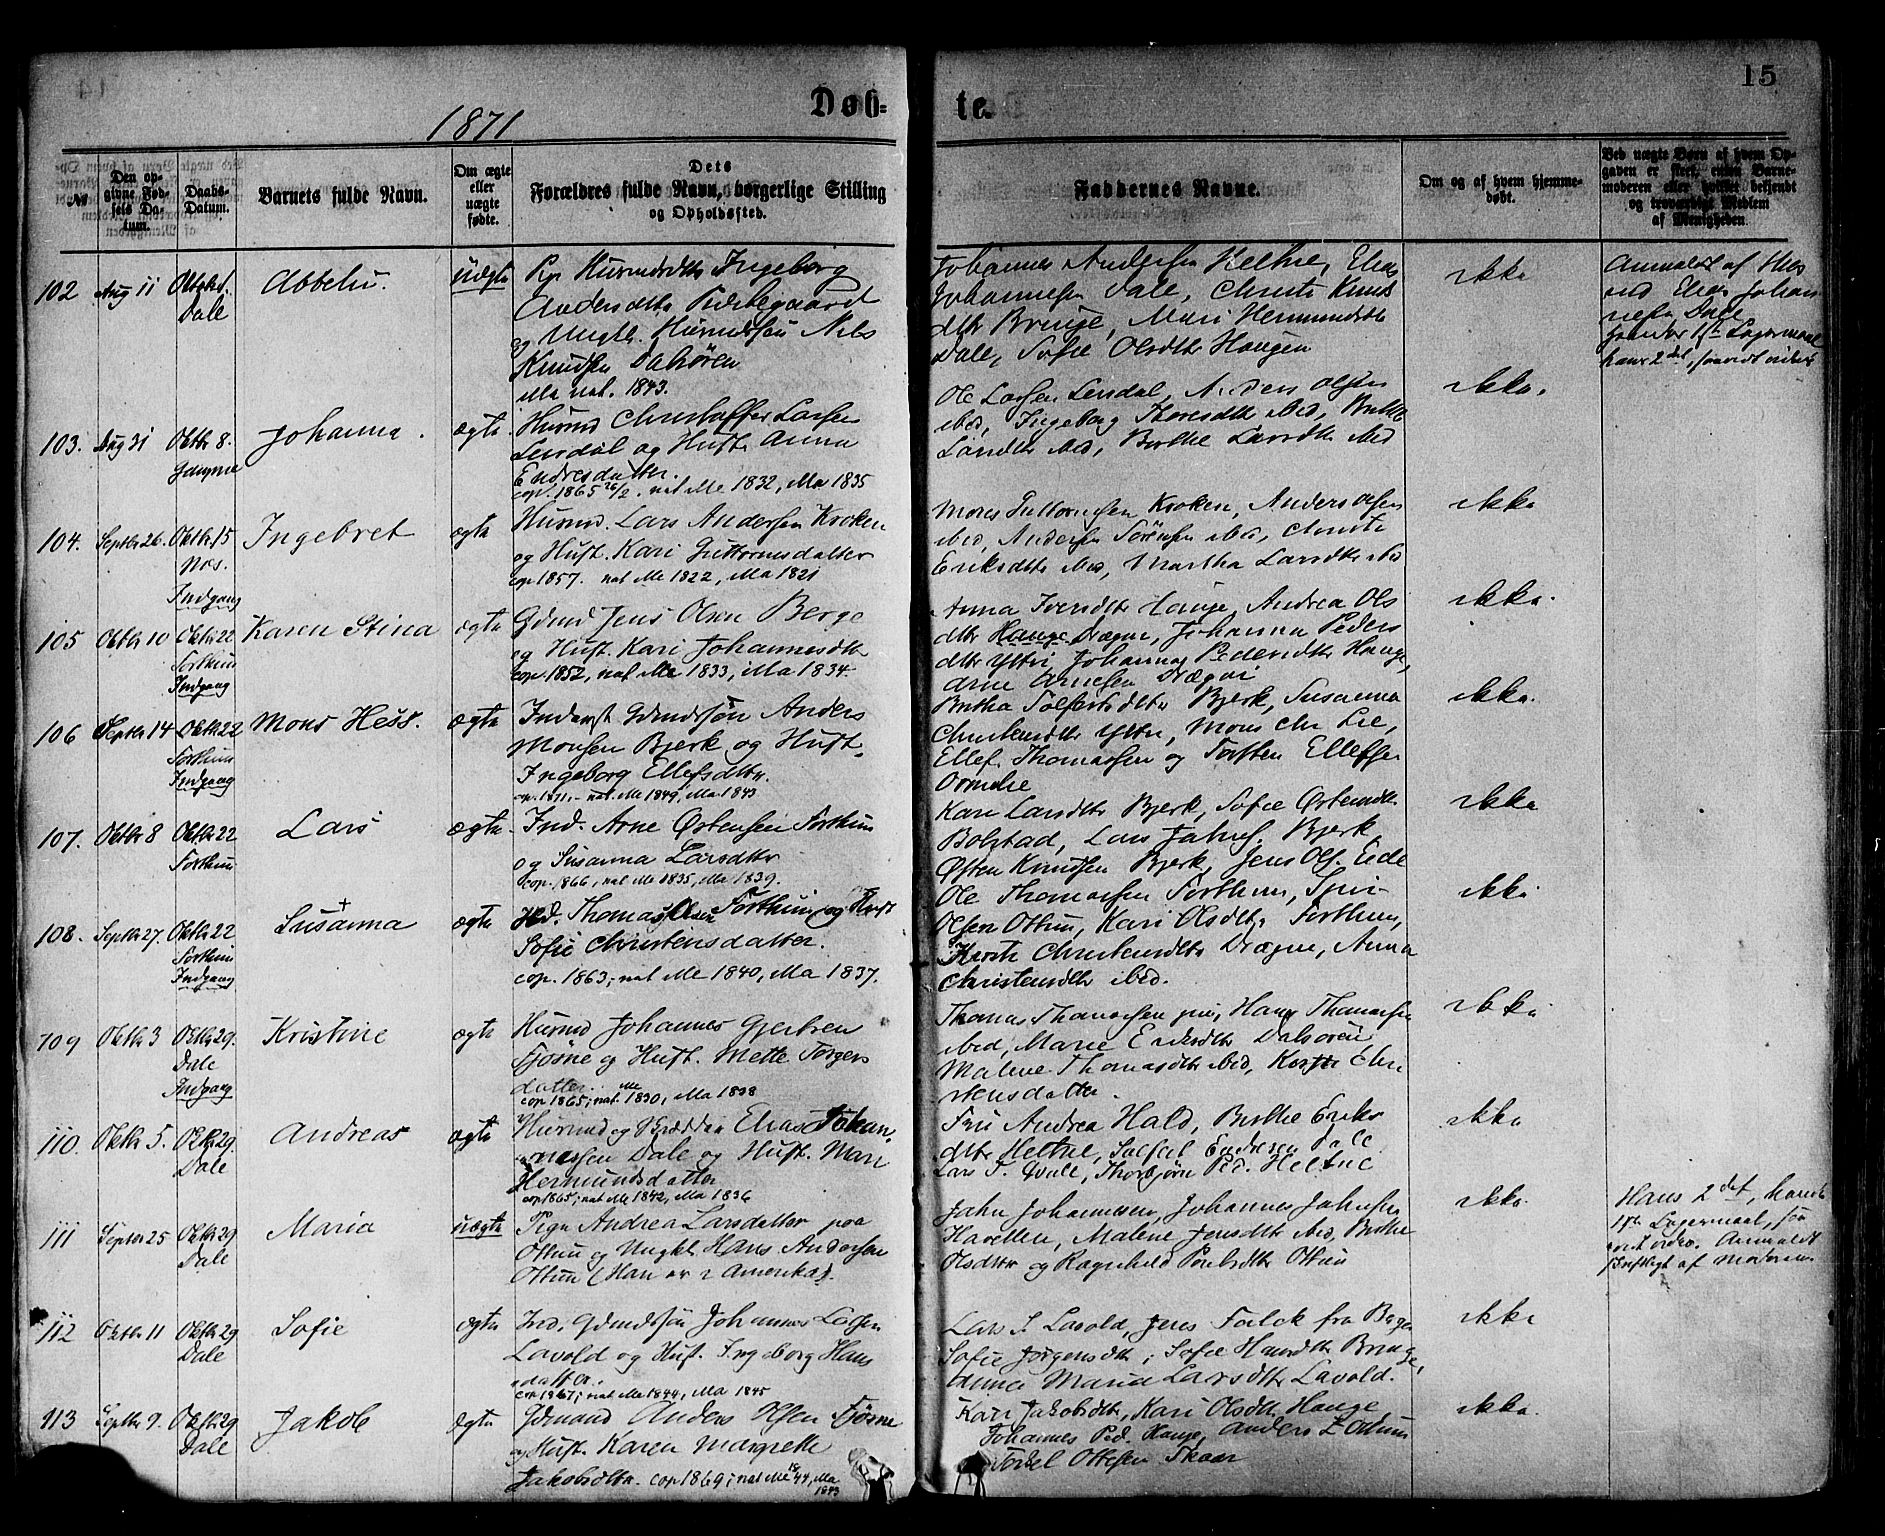 15
1871
Døb-
te.
№
Den op-
givne Fød-
sels Da-
tum.
Daabs-
Datum.
Barnets fulde Navn.
Om ægte
eller
uægte
fødte.
Dets
Forældres fulde Navn, borgerlige Stilling
og Opholdssted.
Faddernes Navne.
Om og af hvem hjemme-
døbt.
Ved uægte Børn af hvem Op-
gaven er skeet, enten Barne-
moderen eller hvilket bekjendt
og troværdigt Medlem
af Menigheden.
102 Aug 11
Dale
uægte
Ingeborg
Andersdtr
og Ungkl. Husmdsøn Nils
Knudsen Dahsören
Ma nat. 1843.
Johannes Andersen Heltne, Elias
Johannesen Dale, Christi Knuds
dtr Bruge, Mari Hermundsdtr
Dale, Sofie Olsdtr Haugen
ikke
Anmeldt af
Elias Johan
nesen Dale
103. Aug 31 Oktbr 8.
Gaupne
Johanna.
ægte
Husmd Christoffer Larsen
Lendal og Hust. Anna
Endresdatter.
cop. 1865 26/2. nat Me 1832, Ma 1835
Ole Larsen Lendal, Anders Olsen
ibid, Ingeborg Thoresdtr ibid, Brithe
Larsdtr ibid, Berthe Larsdtr ibid
ikke.
104. Septbr 26. Oktbr 15
Nes.
Indgang
Ingebret
ægte
Husmd. Lars Andersen Kroken
og Hust. Kari Guttormsdatter
cop 1857. nat Me 1822, Ma 1821
Mons Guttormsen Kroken, Anders Olsen
ibid, Andersen Sörensen ibid, Christi
Eriksdtr ibid, Martha Larsdtr ibid
ikke
105 Oktbr 10 Oktbr 22
Forthun
Indgang
Karen Stina
ægte
Gdmd Jens Olsen Berge
og Hust. Kari Johannesdtr
cop. 1852, nat Me 1833, Ma 1834.
Anna Iversdtr Hauge, Andrea Ols
dtr Hauge Drægne, Johanna Peders
dtr Yttri, Johanna Pedersdtr Hauge,
Arne Arnesen Drægni
ikke.
106 Septbr 14 Oktbr 22
Forthun
Indgang
Mons Hess.
ægte
Inderst Gdmdssøn Anders
Monsen Bjerk og Hust.
Ingeborg Ellefsdttr.
cop. 1871, - nat. Me 1849, Ma 1843
Britha Tolfestsdtr Bjerk, Susanna
Christensdtr Yttri, Mons Chr. Lie,
Ellef Thomassen og Torsten Ellefsen
Ormelie
ikke.
107. Oktbr 8 Oktbr 22
Forthun.
Lars
ægte.
Ind. Arne Østensen Forthun
og Susanna Larsdttr
cop. 1866, nat Me 1835, Ma 1839.
Kari Larsdtr Bjerk, Sofie Østensdtr
Bolstad, Lars Johns. Bjerk,
Østen Knudsen Bjerk, Jens Ols. Eide
ikke
108. Septbr 27. Oktbr 22
Forthun
Indgang
Susanna
ægte
Thomas Olsen Forthun og Hust
Sofie Christensdatter.
cop. 1863; nat Me 1840, Ma 1837.
Ole Thomassen Forthun,
Olsen Ottun, Kari Olsdtr Forthun,
Kersti Christensdtr Drægne, Anna
Christensdtr ibid.
ikke
109 Oktbr 3 Oktbr 29.
Dale
Indgang
Kristine
ægte
Husmd Johannes Gjertsen
Fjösne og Hust. Mette Torgers
datter.
cop 1865; nat. Me 1830, Ma 1838
Thomas Thomassen Hans Thomassen
ibid, Marie Endresdtr Dalsören
Malene Thomasdtr ibid, Kersti Chri
stensdatter.
ikke.
110. Oktbr 5. Oktbr 29
Dale
Andreas
ægte
Husmd og Skrædder Elias Johan
nessen Dale og Hust. Mari
Hermundsdatter
cop 1865; nat Me 1842, Ma 1836
Fru Andrea Hald, Berthe Eriks
dtr Heltne, Endresen Dale
Lars T. Dale, Thorbjörn Ped. Heltne
ikke
111 Septbr 25 Oktbr 29
Dale
Maria
uægte
Pige Andrea Larsdatter paa
Ottun og Ungkl. Hans Andersen
Ottun (Han er i Amerika).
John Johannesen, Johannes Johnsen
Havellen, Malene Jensdtr ibid, Brithe
Olsdttr og Ragnhild Povelsdtr Ottun
ikke.
Hans 2det, hendes
1ste Leiermaal, saa
vidt vides. Anmeldt
skriftligt af Moderen
112 Oktbr 11 Oktbr 29
Dale
Sofie
ægte
Ind. Gdmdssøn Johannes Larsen
Lavold og Hust. Ingeborg Hans
datter.
cop 1867; nat Me 1844, Ma 1845
Lars S. Lavold, Jens Falck fra Bergen
Sofie Jørgensdtr; Sofie Hansdtr Bruge,
Anna Maria Larsdtr Lavold.
ikke
113 Septbr 9. Oktbr 29
Dale
Jakob
ægte
Gdmand Anders Olsen Fjösne
og Hust. Karen Margrethe
Jakobsdtr. cop 1869; nat Me 1844, Ma
1843
Kari Jakobsdtr, Kari Olsdtr Hauge
Johannes Ped. Hauge, Anders L Ottum
Torkel Ottesen Skaar
ikke.